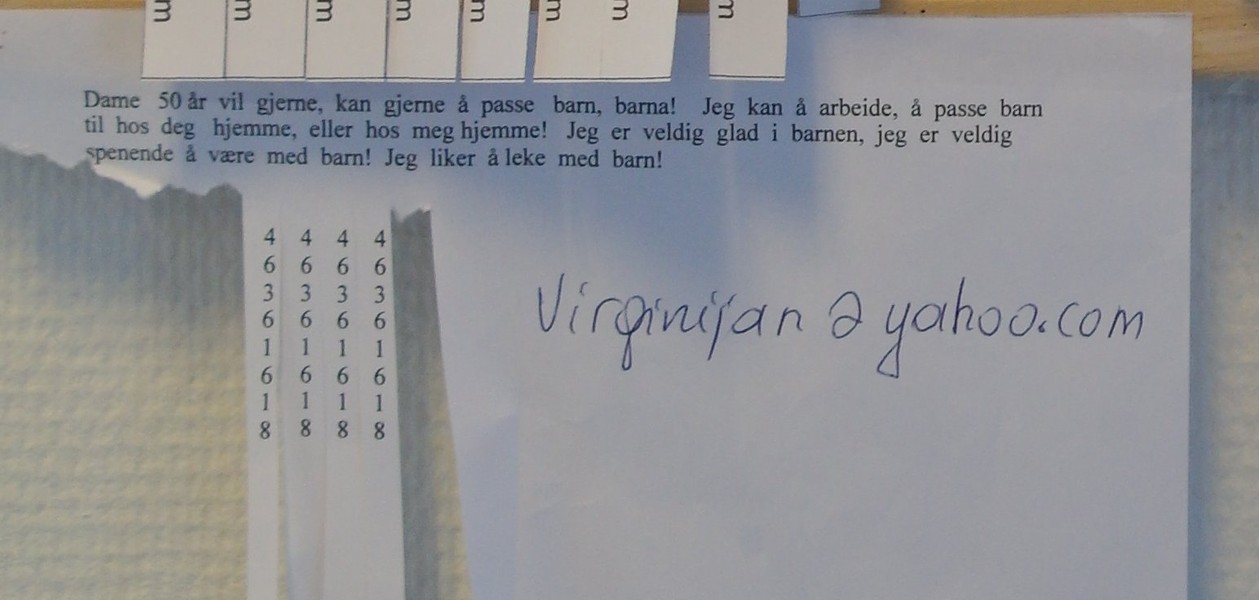 m m m m m m m m
Dame 50 år vil gjerne, kan gjerne å passe barn, barna! Jeg kan å arbeide, å passe barn
til hos deg hjemme, eller hos meg hjemme! Jeg er veldig glad i barnen, jeg er veldig
spenende å være med barn! Jeg liker å leke med barn!
4 4 4 4
6 6 6 6
3 3 3 3
6 6 6 6
1 1 1 1
6 6 6 6
1 1 1 1
8 8 8 8
Virginijan@yahoo.com